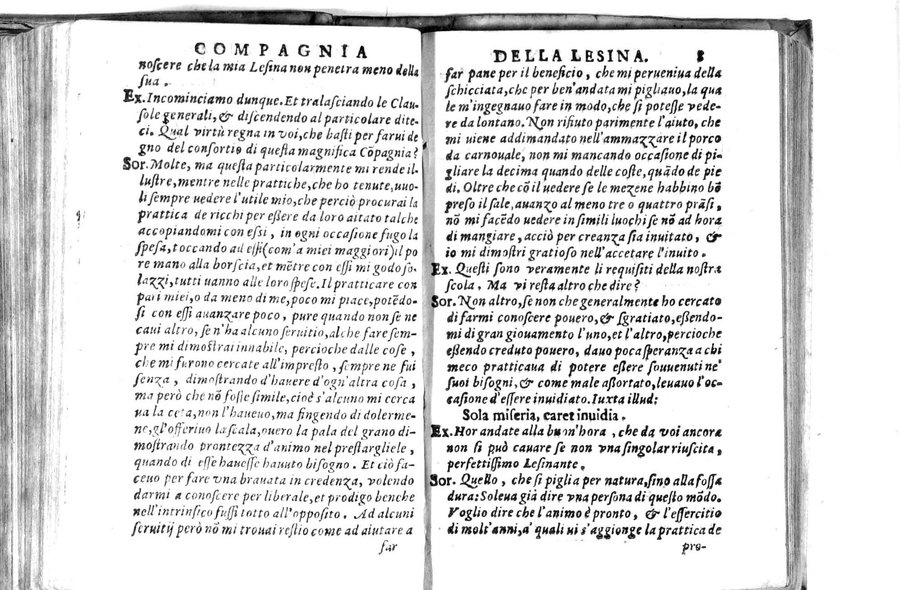 COMPAGNIA
noscere che la mia Lesina non penetra meno della
sua.
Ex. Incominciamo dunque. Et tralasciando le Clau
sole generali, & discendendo al particolare dite-
ci. Qual virtù regna in voi, che basti per farui de
gno del consortio di questa magnifica Cõpagnia?
Sor. Molte, ma questa particolarmente mi rende il-
lustre, mentre nelle prattiche, che ho tenute, uuo-
li sempre vedere l'utile mio, che perciò procurai la
prattica de ricchi per essere da loro aitato talche
accopiandomi con essi, in ogni occasione fugo la
spesa, toccando ad essi (com'a miei maggiori) il po
re mano alla borscia, et mẽtre con essi mi godo so-
lazzi, tutti uanno alle loro spese. Il pratticare con
pari miei, o da meno di me, poco mi piace, potẽdo-
si con essi auanzare poco, pure quando non se ne
caui altro, se n'ha alcuno seruitio, alche fare sem-
pre mi dimostrai innabile, percioche dalle cose,
che mi furono cercate all'impresto, sempre ne fui
senza, dimostrando d'hauere d'ogn'altra cosa,
ma però che nõ fosse simile, cioè s'alcuno mi cerca
ua la ceta, non l'haueuo, ma fingendo di dolerme-
ne, gl'offeriuo la scala, ouero la pala del grano di-
mostrando prontezza d'animo nel prestargliele,
quando di esse hauesse hauuto bisogno. Et ciò fa-
ceuo per fare vna brauata in credenza, volendo
darmi a conoscere per liberale, et prodigo benche
nell'intrinsico fussi totto all'opposito. Ad alcuni
seruitij però nõ mi trouai restio come ad aiutare a
far
DELLA LESINA. 8
far pane per il beneficio, che mi perueniua della
schicciata, che per ben'andata mi pigliauo, la qua
le m'ingegnauo fare in modo, che si potesse vede-
re da lontano. Non rifiuto parimente l'aiuto, che
mi uiene addimandato nell'ammazzare il porco
da carnouale, non mi mancando occasione di pi-
gliare la decima quando delle coste, quãdo de pie
di. Oltre che cõ il uedere se le mezene habbino bẽ
preso il sale, auanzo al meno tre o quattro prãsi,
nõ mi facẽdo uedere in simili luochi se nõ ad hora
di mangiare, acciò per creanza sia inuitato, &
io mi dimostri gratioso nell'accetare l'inuito.
Ex. Questi sono veramente li requisiti della nostra
scola. Ma vi resta altro che dire?
Sor. Non altro, se non che generalmente ho cercato
di farmi conoscere pouero, & sgratiato, essendo-
mi di gran giouamento l'uno, et l'altro, percioche
essendo creduto pouero, dauo poca speranza a chi
meco pratticaua di potere essere souuenuti ne'
suoi bisogni, & come male assortato, leuauo l'oc-
casione d'essere inuidiato. Iuxta illud:
Sola miseria, caret inuidia.
Ex. Hor andate alla buon'hora, che da voi ancora
non si può cauare se non vna singolar riuscita,
perfettissimo Lesinante.
Sor. Quello, che si piglia per natura, sino alla fossa
dura: Soleua già dire vna persona di questo mõdo.
Voglio dire che l'animo è pronto, & l'essercitio
di molt'anni, a' quali ui s'aggionge la prattica de
pro-